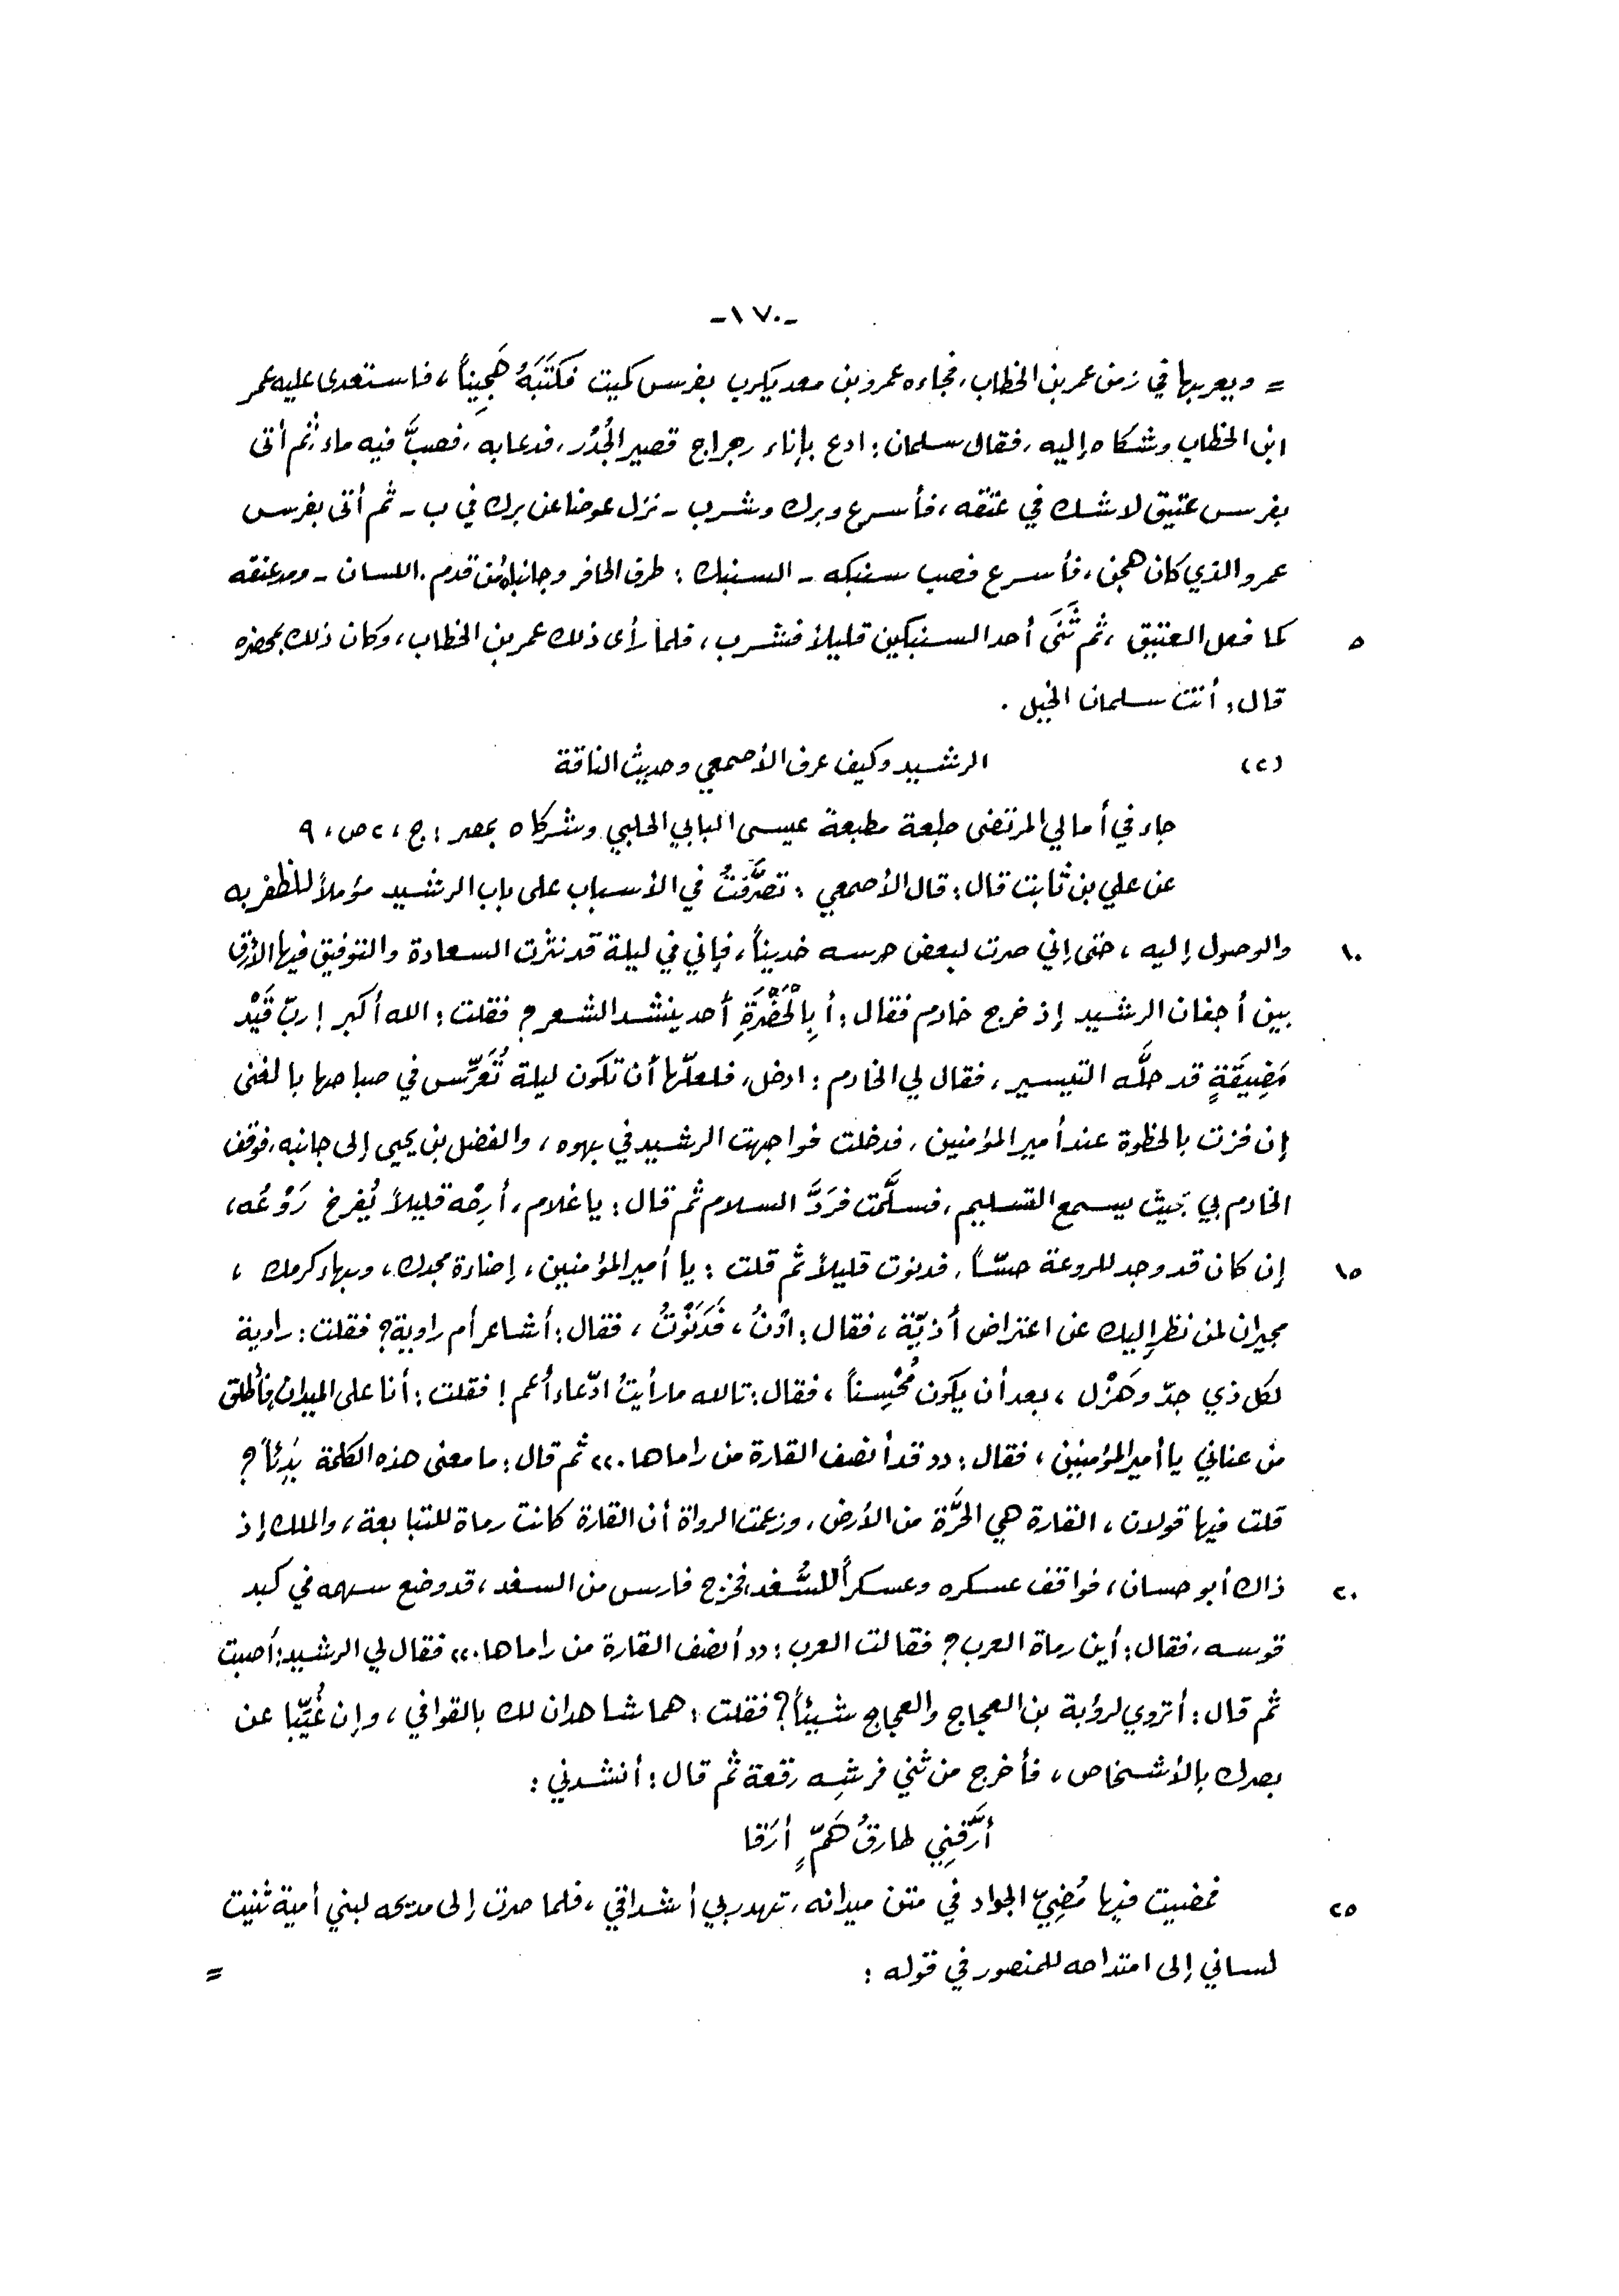 -١٧٠-
= ويعربها في زمن عمر بن الخطاب، فجاءه عمرو بن معد يكرب بفرس كميت فَكَتَبَهُ هَجِيناً، فاستعدى عليه عمر
ابن الخطاب وشكاه إليه، فقال سلمان: ادع بإناء رجراج قصير الجُدُر، فدعا به، فصبَّ فيه ماء، ثم أتى
بفرس عتيق لا شك في عتقه، فأسرع وبرك وشرب - نزل عوضا عن برك في ب - ثم أتى بفرس
عمرو الذي كان هجن، فأسرع فصب سنبكه - السنبك: طرف الحافر وجانباه من قدم. اللسان - ومد عنقه
٥ كما فعل العتيق، ثم ثَنَى أحد السنبكين قليلاً فشرب، فلما رأى ذلك عمر بن الخطاب، وكان ذلك بمحضره
قال: أنت سلمان الخيل.
(٢) الرشيد وكيف عرف الأصمعي وحديث الناقة
جاء في أمالي المرتضى طبعة مطبعة عيسى البابي الحلبي وشركاه بمصر: ج، ٢ ص، ٩
عن علي بن ثابت قال: قال الأصمعي: تصرَّفتُ في الأسباب على باب الرشيد مؤملاً للظفر به
١٠ والوصول إليه، حتى إني صرت لبعض حرسه خديناً، فإني في ليلة قد نثرت السعادة والتوفيق فيها الأرق
بين أجفان الرشيد إذ خرج خادم فقال: أبِالْحَضْرَةِ أحد ينشد الشعر؟ فقلت: الله أكبر! ربّ قَيْد
مَضِيقَةٍ قد حلَّه التيسير، فقال لي الخادم: ادخل، فلعلّها أن تكون ليلة تُعَرِّس في صباحها بالغنى
إن فزت بالحظوة عند أمير المؤمنين، فدخلت فواجهت الرشيد في بهوه، والفضل بن يحيى إلى جانبه، فوقف
الخادم بي بحيث يسمع التسليم، فسلَّمت فرَدَّ السلام ثم قال: يا غلام، أرِحْه قليلاً يُفرخ رَوْعُه،
١٥ إن كان قد وجد للروعة حسّاً، فدنوت قليلاً ثم قلت: يا أمير المؤمنين، إضاءة مجدك، وبهاء كرمك،
مجيران لمن نظر إليك عن اعتراض أذيّة، فقال: ادْنُ، فَدَنَوْتُ، فقال: أشاعر أم راوية؟ فقلت: راوية
لكل ذي جدّ وهَزْل، بعد أن يكون مُحْسِناً، فقال: تالله ما رأيتُ ادّعاء أعم! فقلت: أنا على الميدان، فأطلق
من عناني يا أمير المؤمنين، فقال: «قد أنصف القارة من راماها.» ثم قال: ما معنى هذه الكلمة بَدِئاً؟
قلت فيها قولان، القارة هي الحَرَّة من الأرض، وزعمت الرواة أن القارة كانت رماة للتبابعة، والملك إذ
٢٠ ذاك أبو حسان، فواقف عسكره وعسكراً للسُّغد، فخرج فارس من السغد، قد وضع سهمه في كبد
قوسه، فقال: أين رماة العرب؟ فقالت العرب: «أنصف القارة من راماها.» فقال لي الرشيد: أصبت
ثم قال: أتروي لرؤبة بن العجاج والعجاج شيئاً؟ فقلت: هما شاهدان لك بالقوافي، وإن غُيِّبا عن
بصرك بالأشخاص، فأخرج من ثني فرشِه رقعة ثم قال: أنشدني:
أَرَّقَنِي طارقُ هَمّ ٍ أرَقا
٢٥ فمضيت فيها مُضِيّ الجواد في متن ميدانه، تهدر بي أشداقي، فلما صرت إلى مديحه لبني أمية ثنيت
لساني إلى امتداحه للمنصور في قوله: =